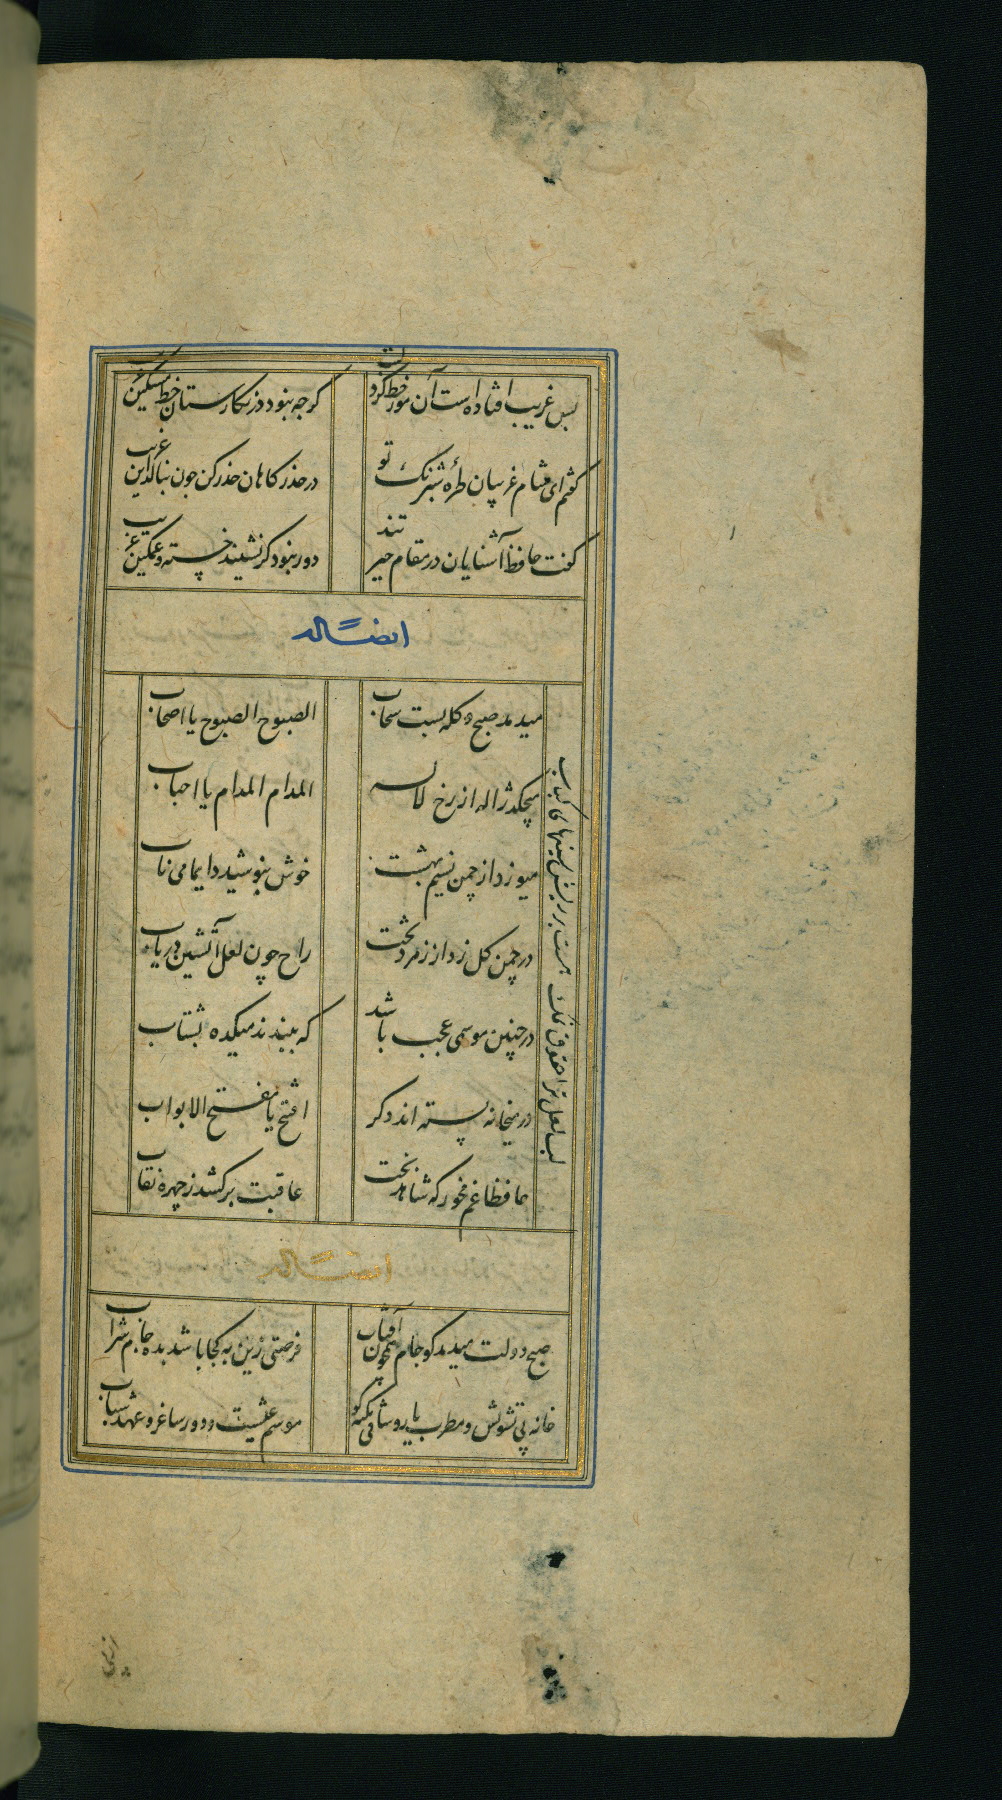 بس غریب افتاده است آن مور خط گرد رخت گرچه نبود در نگارستان خط مشکین غریب
گفتم ای شام غریبان طره شبرنگ تو در حذر کاهان حذر کن چون بنالد این غریب
گفت حافظ آشنایان در مقام حیرتند دور نبود گر نشیند خسته و غمگین غریب
ایضاً له
میدمد صبح و کله بست سحاب الصبوح الصبوح یا اصحاب
میچکد ژاله از رخ لاله المدام المدام یا احباب
میوزد از چمن نسیم بهشت خوش بنوشید دایما می ناب
در چمن گل زد از زمرد تخت راح چون لعل آتشین دریاب
در چنین موسمی عجب باشد که ببندند میکده بشتاب
در میخانه بسته اند دگر افتح یا مفتح الابواب
لب لعل ترا حقوق نمک هست بر ریش سینهای کباب
حافظا غم مخور که شاهد بخت عاقبت برکشد ز چهره نقاب
ایضاً له
صبح دولت میدمد کو جام همچون آفتاب فرصتی زین به کجا باشد بده جام شراب
خانه بی تشویش و مطرب یار و ساقی نکته گو موسم عیشست و دور ساغر و عهد شباب